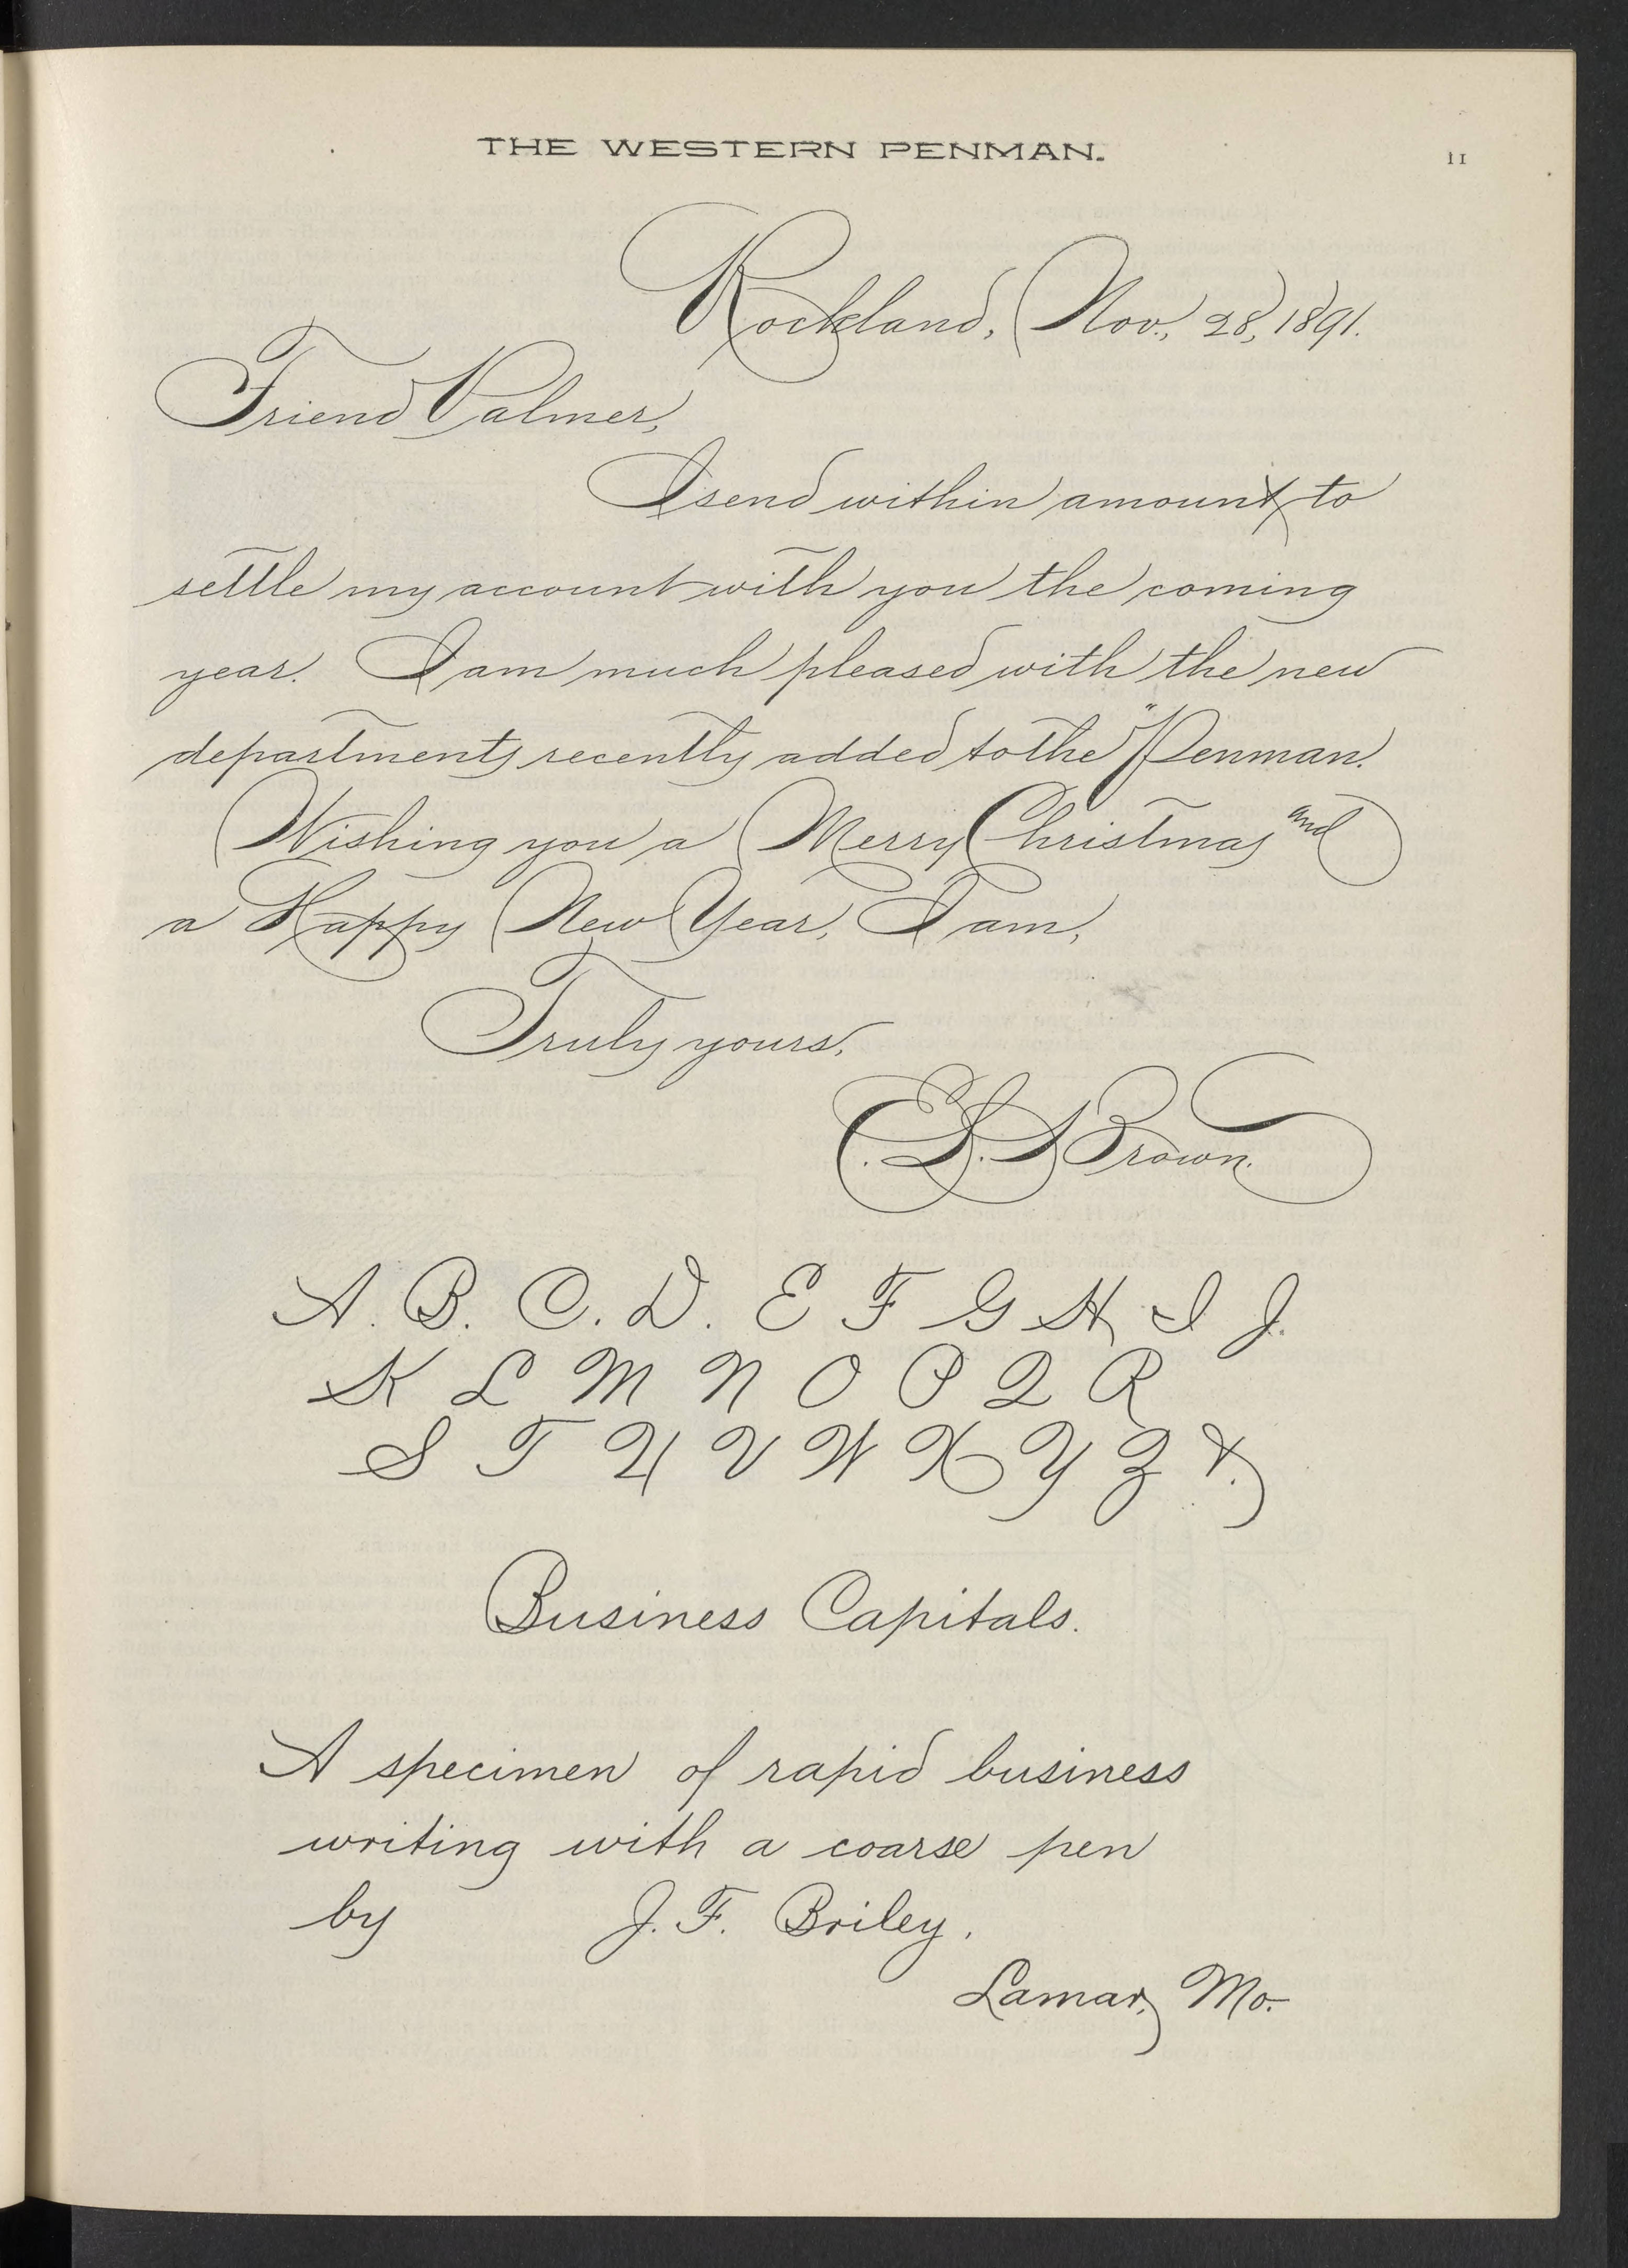 THE WESTERN PENMAN.
11
Rockland, Nov., 28, 1891.
Friend Palmer,
I send within amount to
settle my account with you the coming
year. I am much pleased with the new
departments recently added to the "Penman.
Wishing you a Merry Christmas and
a Happy New Year, I am,
Truly yours,
E. L. Brown.
A. B. C. D. E F G H I J.
K L M N O P Q R
S T U V W X Y Z &.
Business Capitals.
A specimen of rapid business
writing with a coarse pen
by J. F. Briley.
Lamar, Mo.